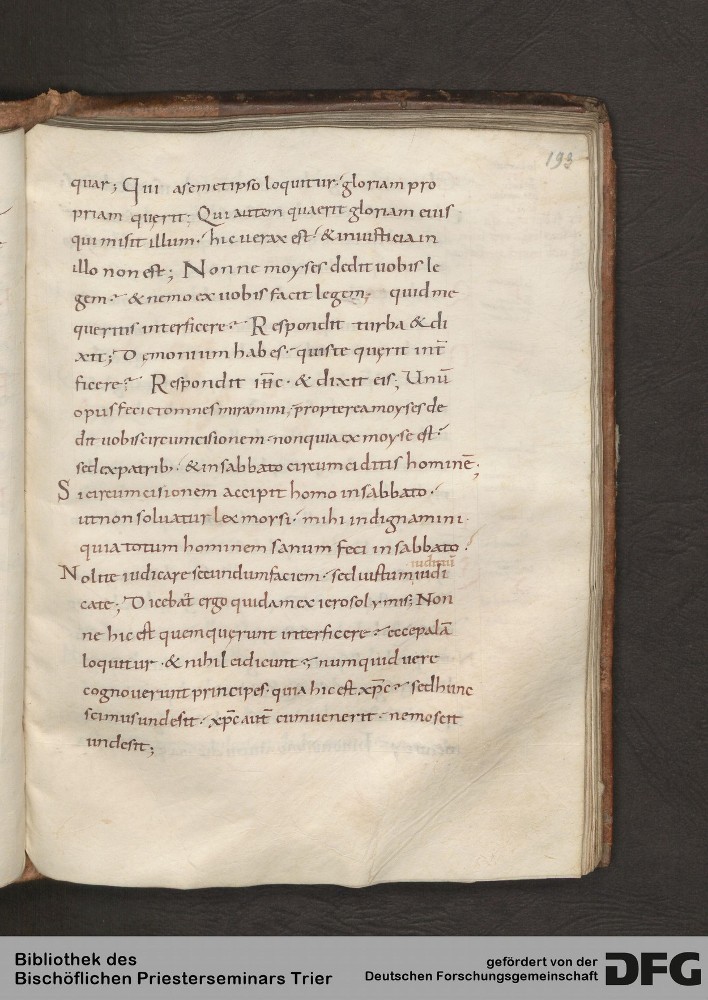 193
quar; Qui asemetipso loquitur· gloriam pro
priam querit; Qui autem quaerit gloriam eius
qui misit illum· hic uerax est· & iniusticia in
illo non est; Nonne moyses dedit uobis le
gem· & nemo ex uobis facit legem; quid me
queritis interficere? Respondit turba & di
xit; Demonium habes· quis te querit int̄
ficere? Respondit ih̄c· & dixit eis; Unū
opus feci et omnes miramini; propterea moyses de
dit uobis circumcisionem· non quia ex moyse est·
sed ex patrib;· & in sabbato circumciditis hominē;
Si circumcisionem accipit homo in sabbato·
ut non soluatur lex moysi· mihi indignamini·
quia totum hominem sanum feci in sabbato·
iudiciū
Nolite iudicare secundum faciem· sed iustum iudi
cate; Dicebāt ergo quidam ex ierosolymis; Non
ne hic est quem querunt interficere? ecce palā
loquitur· & nihil ei dicunt; numquid uere
cognouerunt principes· quia hic est xp̄c? sed hunc
scimus unde sit· xp̄c aut̄ cum uenerit· nemo scit
unde sit;
Bibliothek des
Bischöflichen Priesterseminars Trier
gefördert von der
Deutschen Forschungsgemeinschaft
DFG